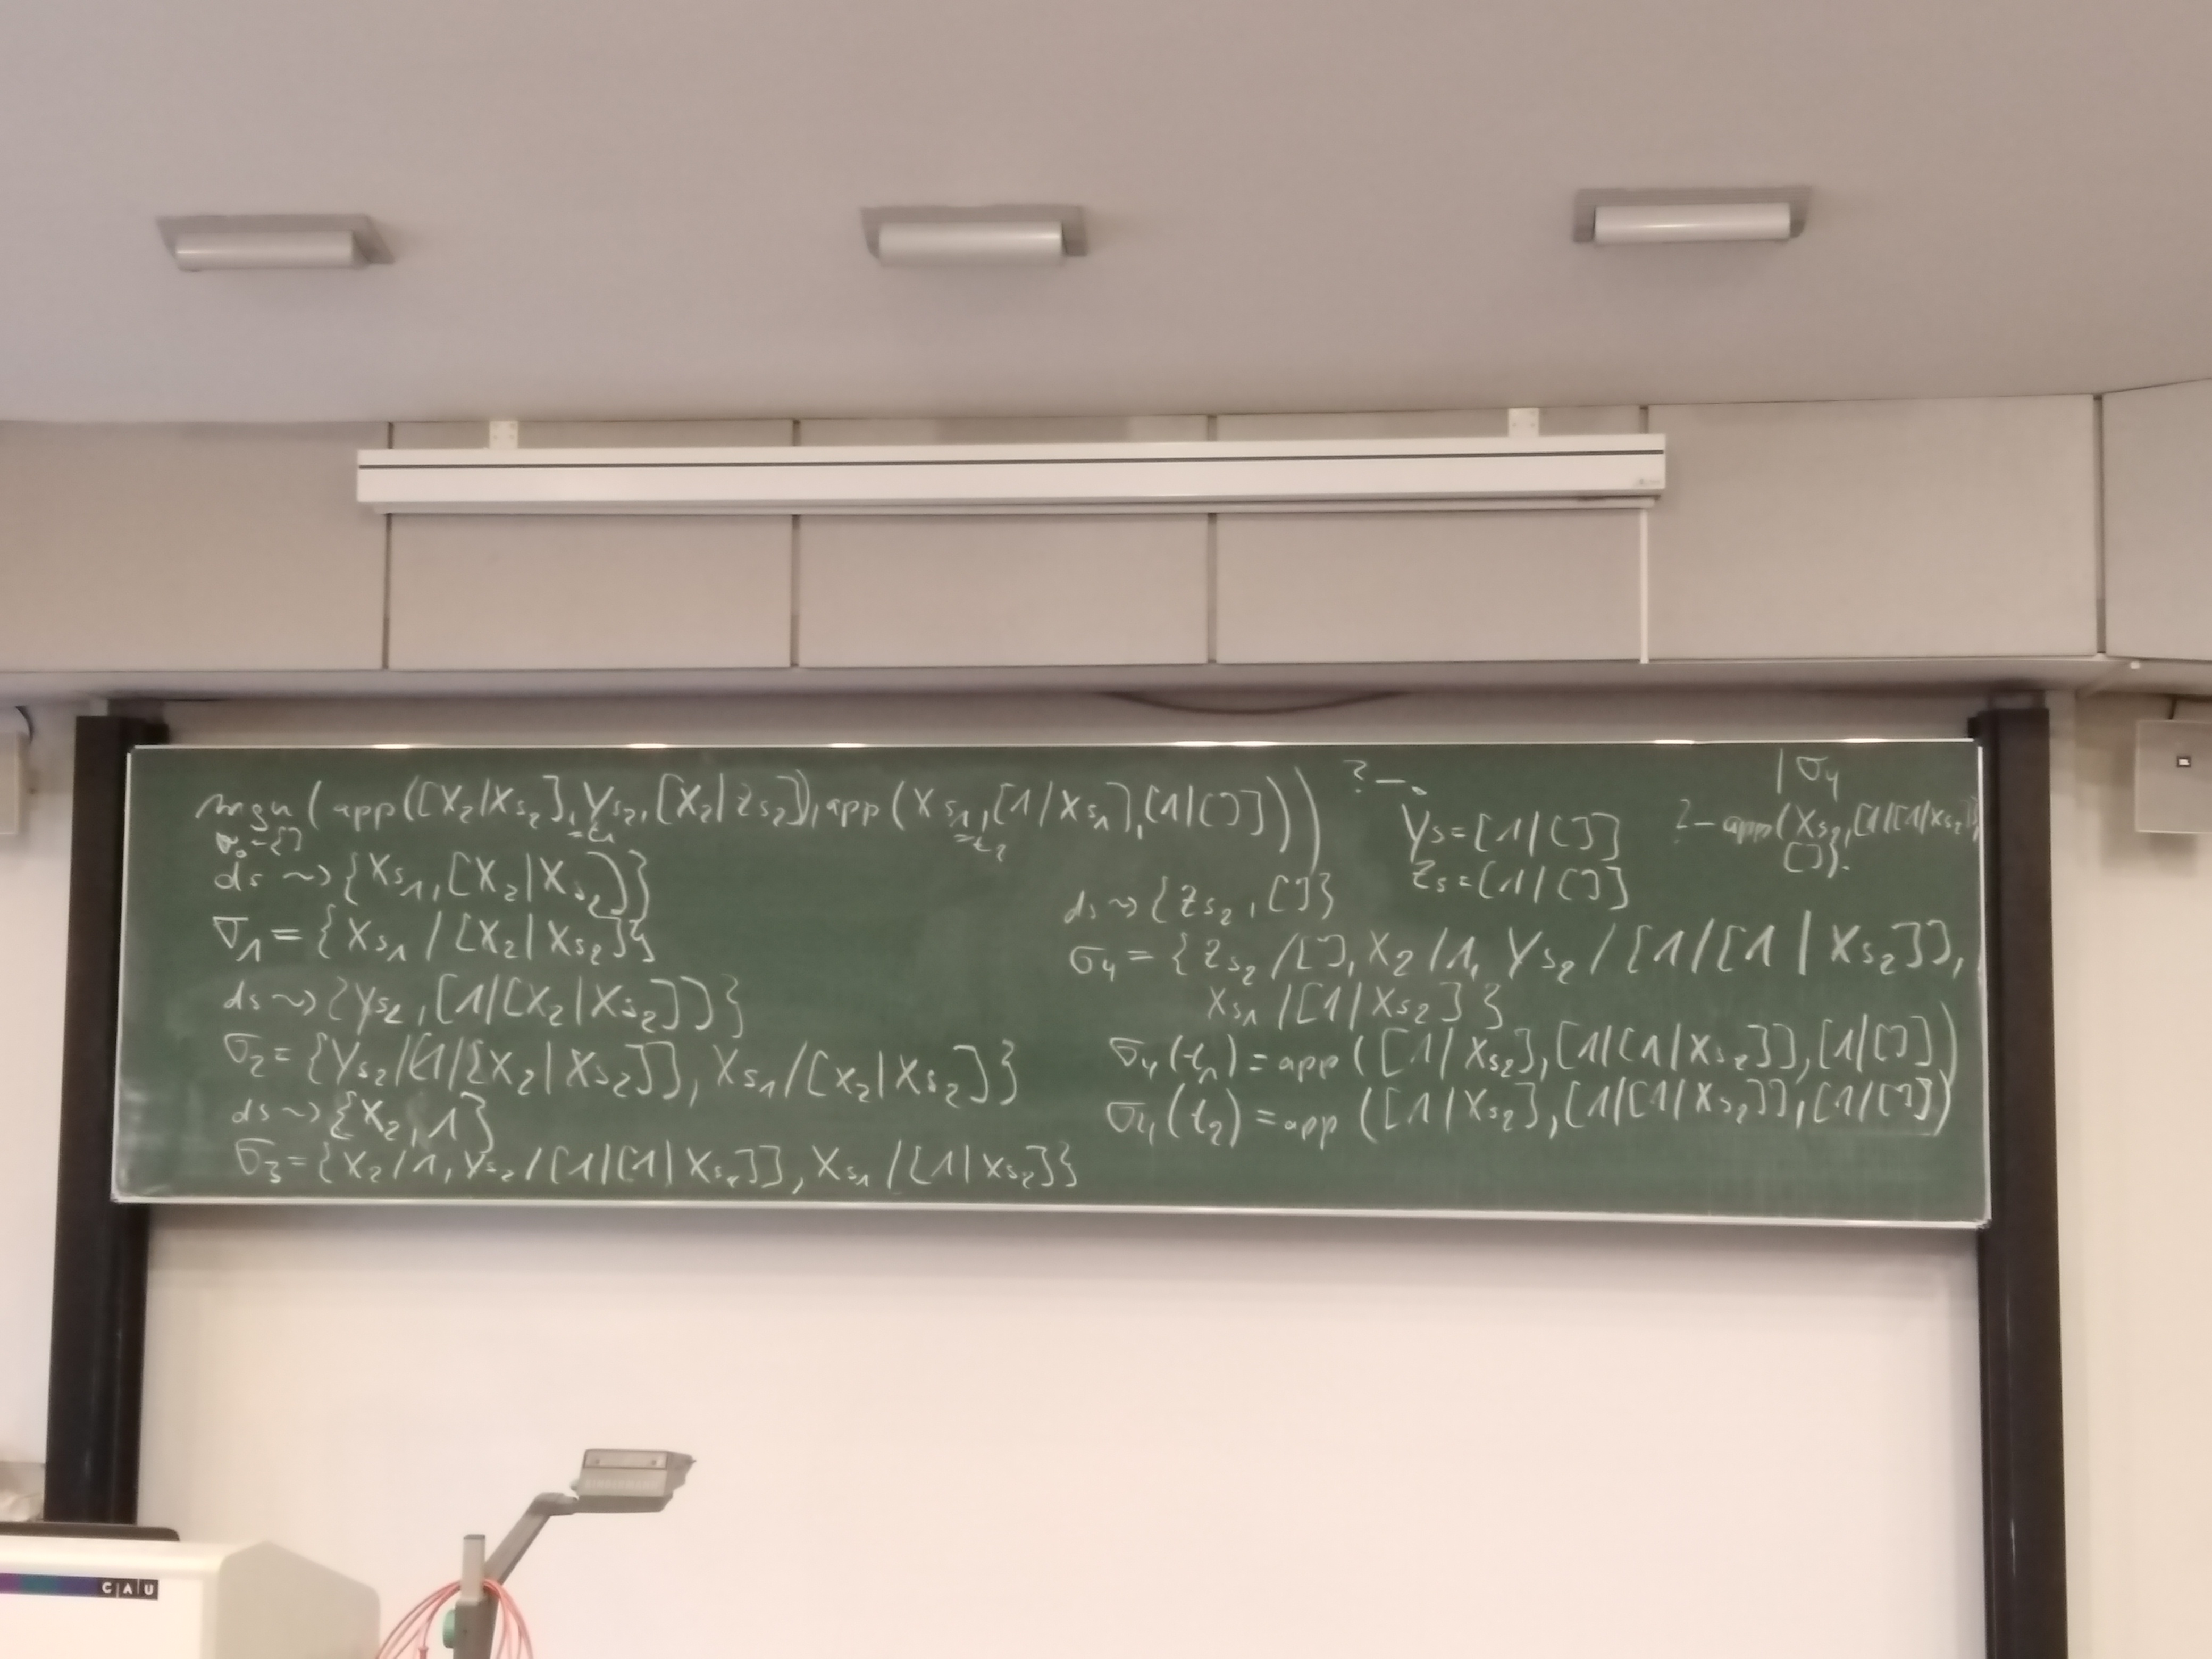 mgu(app([X₂|Xs₂],Ys₂,[X₂|Zs₂]),app(Xs₁,[1|Xs₁],[1|[]]))
=t₁ =t₂
σ₀={}
ds ~> {Xs₁,[X₂|Xs₂]}
σ₁ = {Xs₁/[X₂|Xs₂]}
ds ~> {Ys₂,[1|[X₂|Xs₂]]}
σ₂ = {Ys₂/[1|[X₂|Xs₂]], Xs₁/[X₂|Xs₂]}
ds ~> {X₂,1}
σ₃ = {X₂/1, Ys₂/[1|[1|Xs₂]], Xs₁/[1|Xs₂]}
?-.
Ys=[1|[]]
Zs=[1|[]]
|σ₄
?-app(Xs₂,[1|[1|Xs₂]],
[]).
ds ~> {Zs₂,[]}
σ₄ = {Zs₂/[], X₂/1, Ys₂/[1|[1|Xs₂]],
Xs₁/[1|Xs₂]}
σ₄(t₁) = app([1|Xs₂],[1|[1|Xs₂]],[1|[]])
σ₄(t₂) = app([1|Xs₂],[1|[1|Xs₂]],[1|[]])
C|A|U